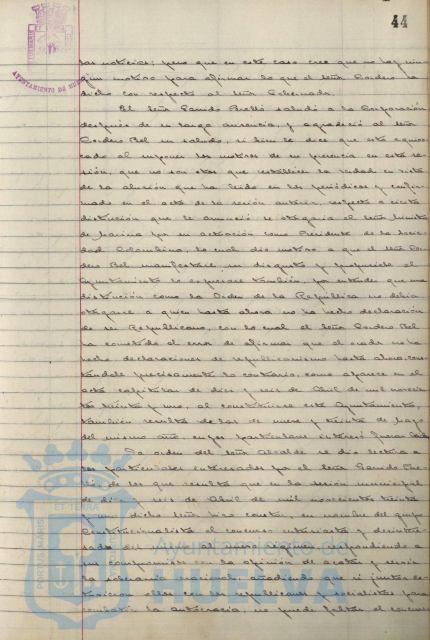 44
AYUNTAMIENTO DE HUELVA
las noticias; pero que en este caso cree que no hay nin-
gún motivo para afirmar lo que el señor Cordero ha
dicho con respecto al señor Gobernador.
El señor Garrido Perelló saludó a la Corporación
después de su larga ausencia, y agradeció al señor
Cordero Bel su saludo, si bien le dice que está equivo-
cado al suponer los motivos de su presencia en esta se-
sión, que no son otros que restablecer la verdad en vista
de la alusión que ha leido en los periódicos y confir-
mado en el acta de la sesión anterior, respecto a cierta
distinción que se anunció se otorgaría al señor
de Marina por su actuación como Presidente de la Socie-
dad Colombina, lo cual dió motivo a que el señor Cor-
dero Bel manifestase su disgusto y propusiese al
Ayuntamiento lo expresase también, por entender que una
distinción como la Orden de la República no debia
otorgarse a quien hasta ahora no ha hecho declaración
de ser Republicano, con lo cual el señor Cordero Bel
ha cometido el error de afirmar que el orador no ha
hecho declaraciones de republicanismo hasta ahora, cons-
tándole precisamente lo contrario, como aparece en el
acta capitular de diez y seis de Abril de mil novecien-
tos treinta y uno, al constituirse este Ayuntamiento,
y también resulta de las de nueve y treinta de Mayo
del mismo año, cuyos particulares interesó fueran leidos.
De orden del señor Alcalde se dió lectura a
los particulares interesados por el señor Garrido Pere-
lló de los que resulta que en la sesión municipal
de diez y seis de Abril de mil novecientos treinta
y uno, dicho señor hizo constar en nombre del grupo
Constitucionalista el concurso entusiasta y desintere-
sado del mismo al nuevo régimen, respondiendo a
su compromiso con la opinión de acatar y servir
la soberanía nacional, añadiendo que si juntos es-
tuvieron ellos con los republicanos y socialistas para
combatir la autocracia, no puede faltar el concurso
PORTUS MARIS
ET TERRÆ
Ayuntamiento de
HUELVA